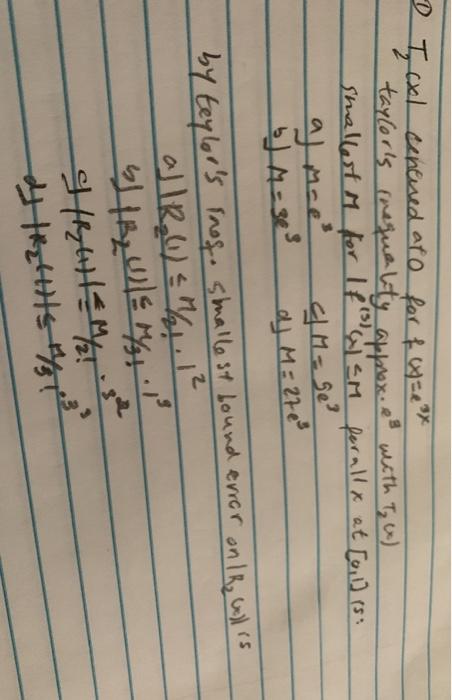 ① T₂(x) centered at 0 for f(x)=e³ˣ
taylor's inequality approx. e³ with T₂(x)
smallest M for |f⁽³⁾(x)|≤M for all x at [0,1] is:
a) M=e³ c) M=9e³
b) M=3e³ d) M=27e³
by taylor's Ineq. smallest bound error on |R₂(x)| is
a) |R₂(1)| ≤ M/2! · 1²
b) |R₂(1)| ≤ M/3! · 1³
c) |R₂(1)| ≤ M/2! · 3²
d) |R₂(1)| ≤ M/3! · 3³